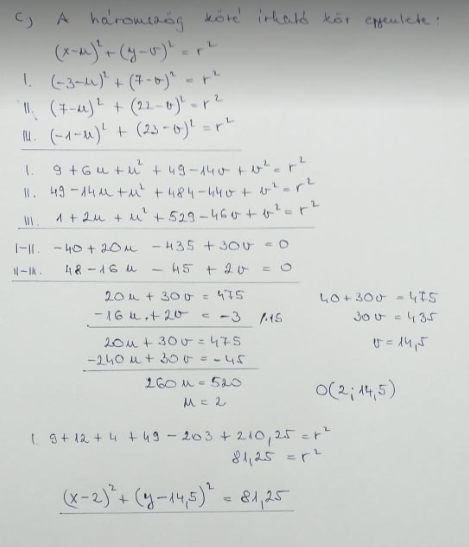 c) A háromszög köré írható kör egyenlete:
(x-u)² + (y-v)² = r²
I. (-3-u)² + (7-v)² = r²
II. (7-u)² + (22-v)² = r²
III. (-1-u)² + (23-v)² = r²
I. 9 + 6u + u² + 49 - 14v + v² = r²
II. 49 - 14u + u² + 484 - 44v + v² = r²
III. 1 + 2u + u² + 529 - 46v + v² = r²
I-II. -40 + 20u - 435 + 30v = 0
II-III. 48 - 16u - 45 + 2v = 0
20u + 30v = 475
-16u + 2v = -3 /·15
20u + 30v = 475
-240u + 30v = -45
260u = 520
u = 2
40 + 30v = 475
30v = 435
v = 14,5
O(2; 14,5)
I. 9 + 12 + 4 + 49 - 203 + 210,25 = r²
81,25 = r²
(x-2)² + (y-14,5)² = 81,25